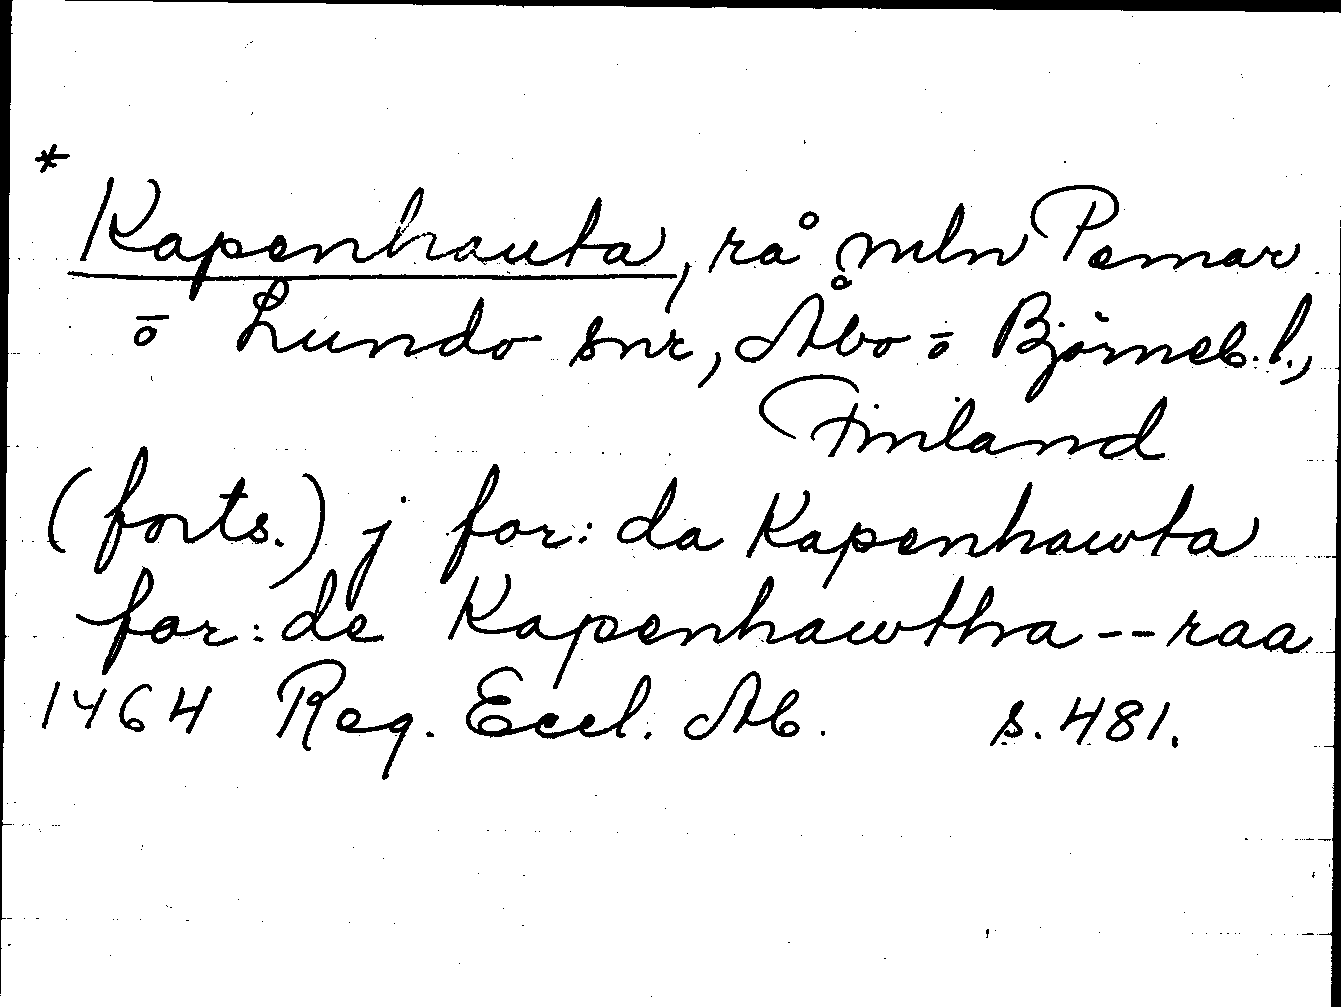 *
Kapenhauta, rå mln Pemar
ō Lundo snr, Åbo ō Björneb. l.,
Finland
(forts.) j for: da Kapenhawta
for: de Kapenhawtha -- raa
1464 Reg. Eccl. Ab. s. 481.